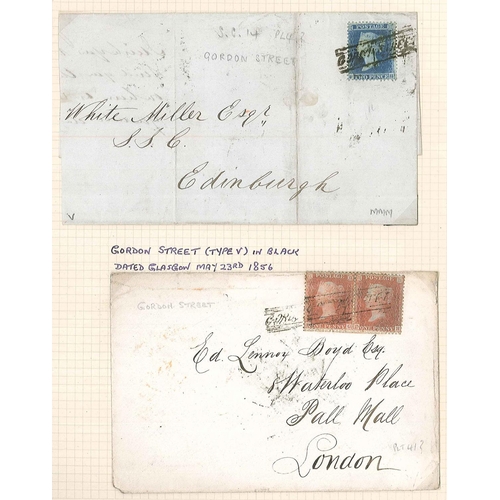 S.C. 14 PL4?
GORDON STREET
TWO PENCE
White Miller Esqr
S.S.C.
Edinburgh
V
GORDON STREET (TYPE V) IN BLACK
DATED GLASGOW MAY 23RD 1856
GORDON STREET
ONE PENNY ONE PENNY
Ed. Lennox Boyd Esq.
8 Waterloo Place
Pall Mall
London